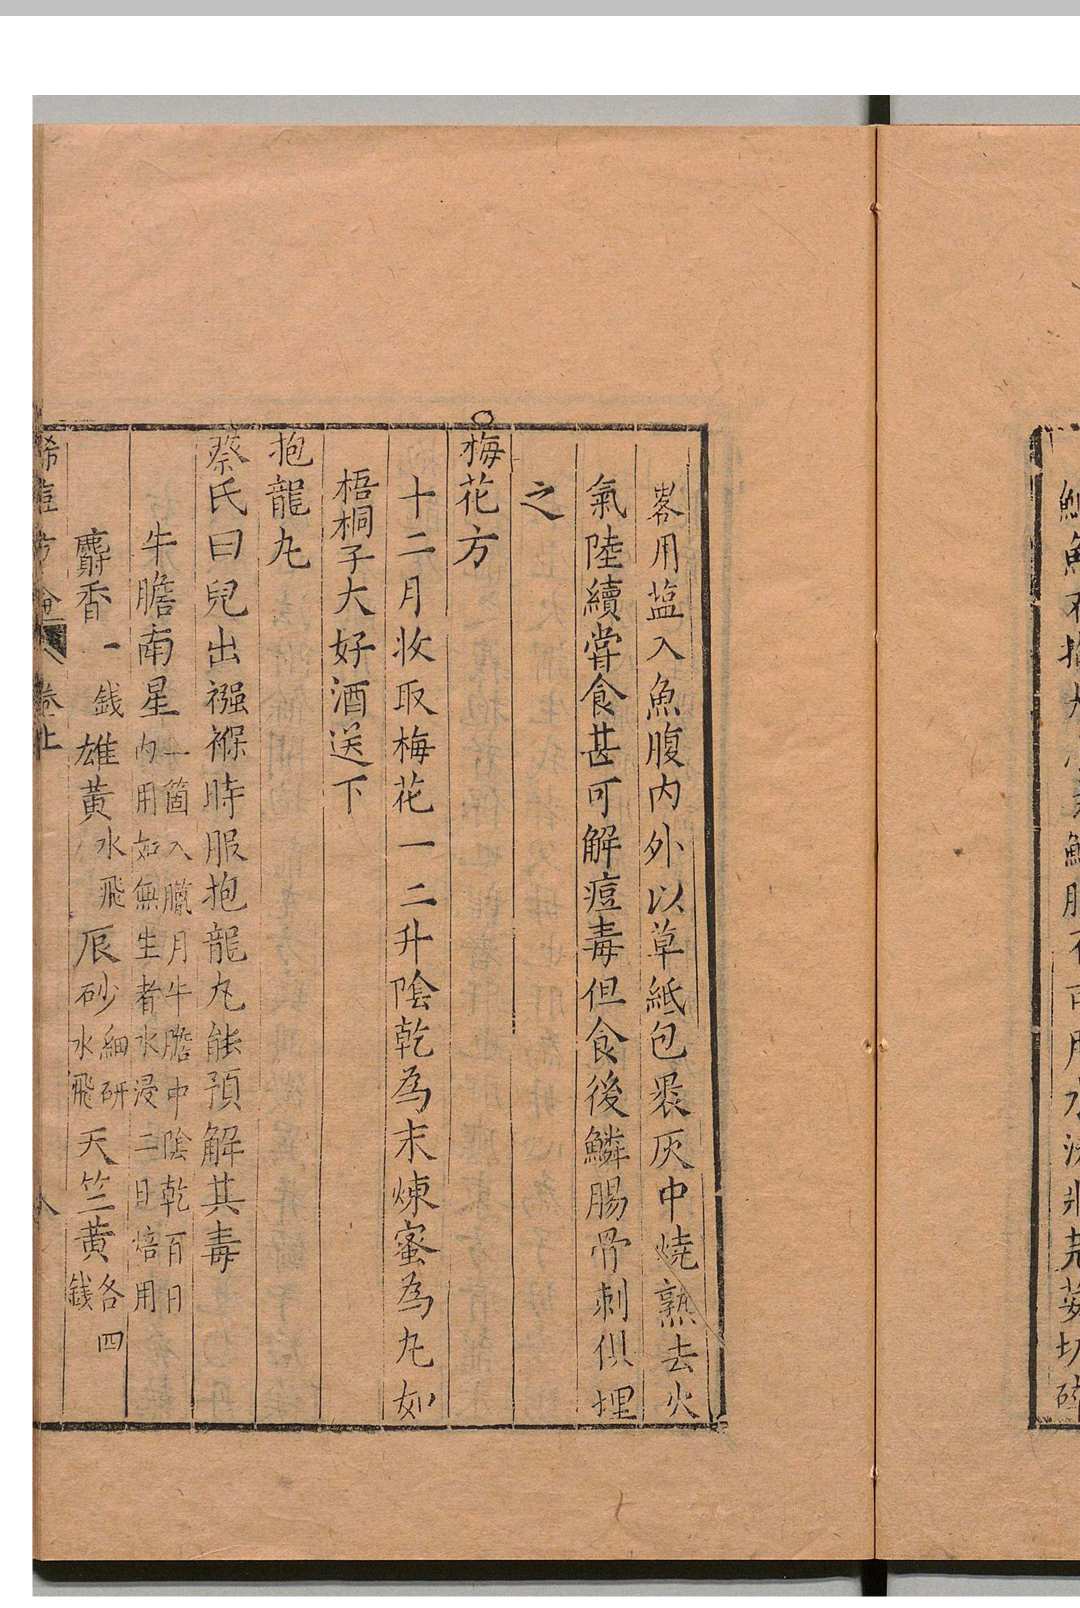 鯽魚不拘大小去鱗腸不可用水洗將芫荽切碎
畧用塩入魚腹内外以草紙包裹灰中燒熟去火
氣陸續甞食甚可解痘毒但食後鱗腸骨刺俱埋
之
梅花方
十二月收取梅花一二升陰乾為末煉蜜為丸如
梧桐子大好酒送下
抱龍丸
蔡氏曰兒出襁褓時服抱龍丸能預解其毒
牛膽南星一箇入臘月牛膽中陰乾百日
内用如無生者水浸三日焙用
麝香一錢雄黃水飛辰砂細研水飛天竺黃各四錢
稀痘方 卷上 八